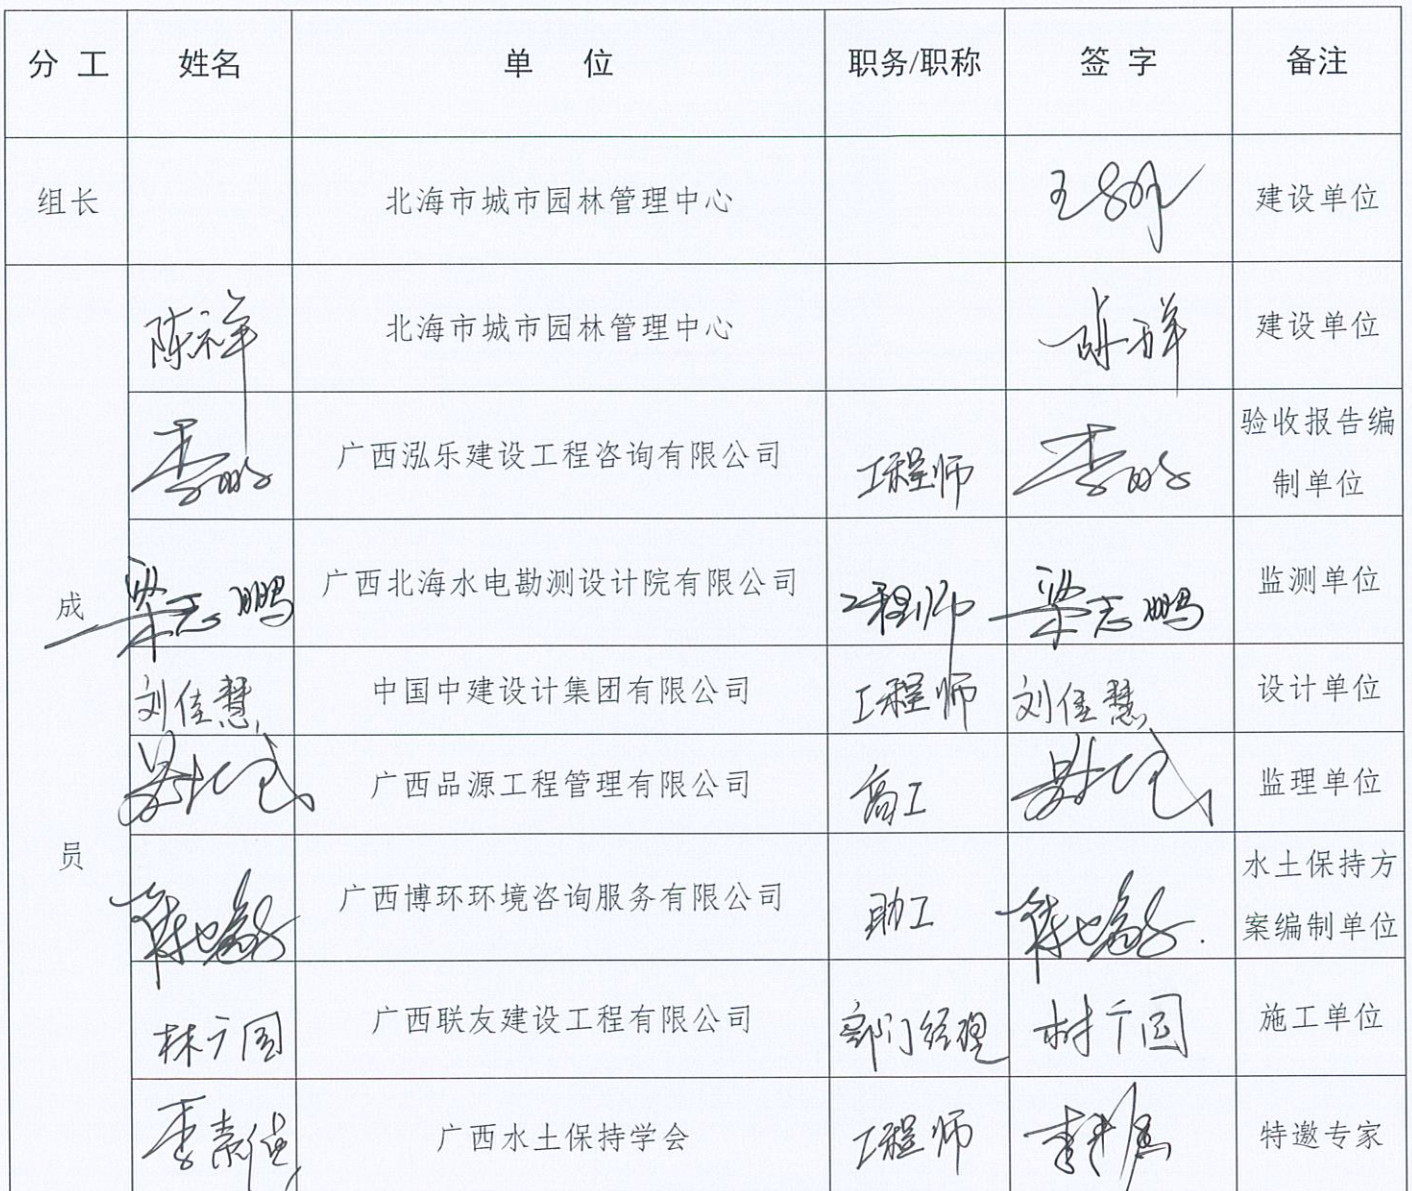 分 工 姓名 单 位 职务/职称 签 字 备注
组长 北海市城市园林管理中心 建设单位
陈祥 北海市城市园林管理中心 陈祥 建设单位
李明 广西泓乐建设工程咨询有限公司 工程师 李明 验收报告编
制单位
成
梁志鹏 广西北海水电勘测设计院有限公司 工程师 梁志鹏 监测单位
刘佳慧 中国中建设计集团有限公司 工程师 刘佳慧 设计单位
广西品源工程管理有限公司 高工 监理单位
员
广西博环环境咨询服务有限公司 助工 水土保持方
案编制单位
林广国 广西联友建设工程有限公司 部门经理 林广国 施工单位
广西水土保持学会 工程师 特邀专家